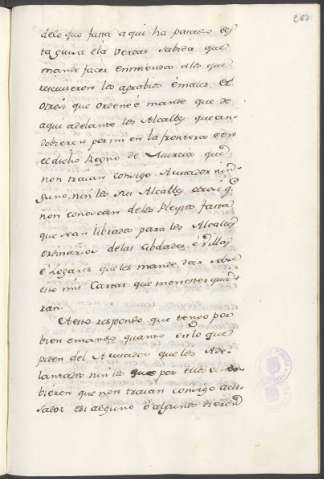 delo que fasta aqui ha pasado es
ta guisa ela verdad sabida que
mande facer enmienda a los que
rescivieron los agravios é males. Et
Otrosi que Ordene é mande que de
aqui adelante los Alcalles que an-
dobieren por mi en la frontera con
el dicho Regno de Murcia que
non traian consigo Acusador nin-
guno, nin los sus Alcalles otrosi q.
non conoscan delos Pleytos fasta
que sean librados para los Alcalles
ordinarios delas Cibdades, é villas
é logares que les mande dar sobre
esto mis Cartas que menester
A esto respondo, que tengo por
bien é mando quanto en lo que
piden del Acusador que los Ade-
lantados nin los que por ellos
bieren que non traian consigo acu-
sador ca alguno ó algunos